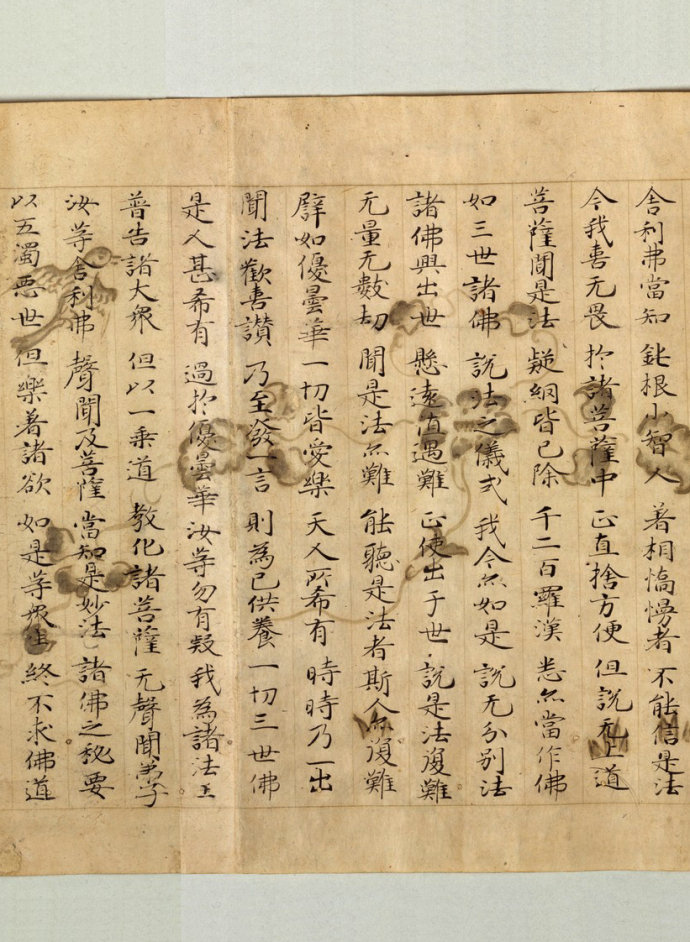 舍利弗當知 鈍根小智人 著相憍慢者 不能信是法
今我喜无畏 於諸菩薩中 正直捨方便 但說无上道
菩薩聞是法 疑網皆已除 千二百羅漢 悉亦當作佛
如三世諸佛 說法之儀式 我今亦如是 說无分別法
諸佛興出世 懸遠值遇難 正使出于世 說是法復難
无量无數劫 聞是法亦難 能聽是法者 斯人亦復難
譬如優曇華 一切皆愛樂 天人所希有 時時乃一出
聞法歡喜讚 乃至發一言 則為已供養 一切三世佛
是人甚希有 過於優曇華 汝等勿有疑 我為諸法王
普告諸大衆 但以一乘道 教化諸菩薩 无聲聞弟子
汝等舍利弗 聲聞及菩薩 當知是妙法 諸佛之秘要
以五濁惡世 但樂著諸欲 如是等衆生 終不求佛道